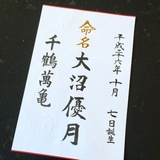 平成二十六年十月
七日誕生
命名
大沼優月
千鶴萬亀